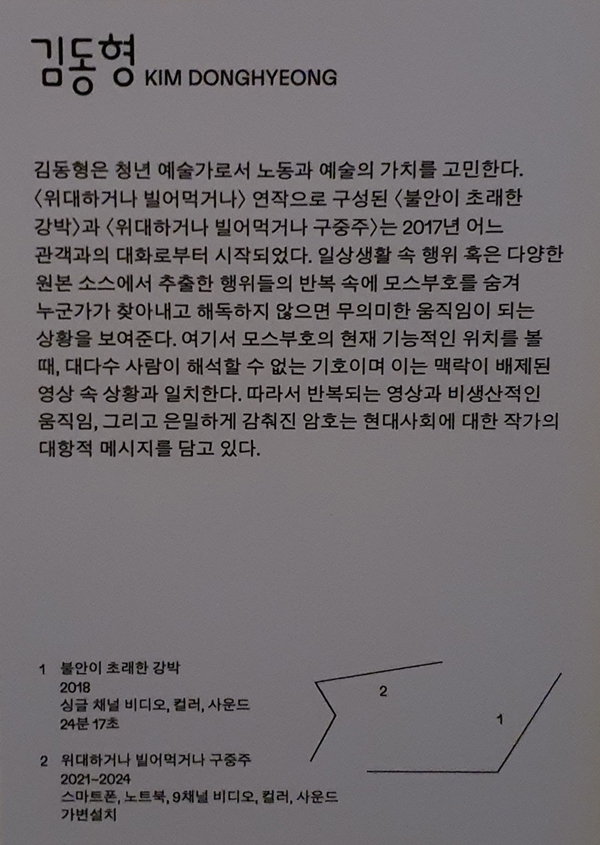 김동형 KIM DONGHYEONG
김동형은 청년 예술가로서 노동과 예술의 가치를 고민한다.
〈위대하거나 빌어먹거나〉 연작으로 구성된 〈불안이 초래한
강박〉과 〈위대하거나 빌어먹거나 구중주〉는 2017년 어느
관객과의 대화로부터 시작되었다. 일상생활 속 행위 혹은 다양한
원본 소스에서 추출한 행위들의 반복 속에 모스부호를 숨겨
누군가가 찾아내고 해독하지 않으면 무의미한 움직임이 되는
상황을 보여준다. 여기서 모스부호의 현재 기능적인 위치를 볼
때, 대다수 사람이 해석할 수 없는 기호이며 이는 맥락이 배제된
영상 속 상황과 일치한다. 따라서 반복되는 영상과 비생산적인
움직임, 그리고 은밀하게 감춰진 암호는 현대사회에 대한 작가의
대항적 메시지를 담고 있다.
1 불안이 초래한 강박
2018
싱글 채널 비디오, 컬러, 사운드
24분 17초
2 위대하거나 빌어먹거나 구중주
2021–2024
스마트폰, 노트북, 9채널 비디오, 컬러, 사운드
가변설치
2
1